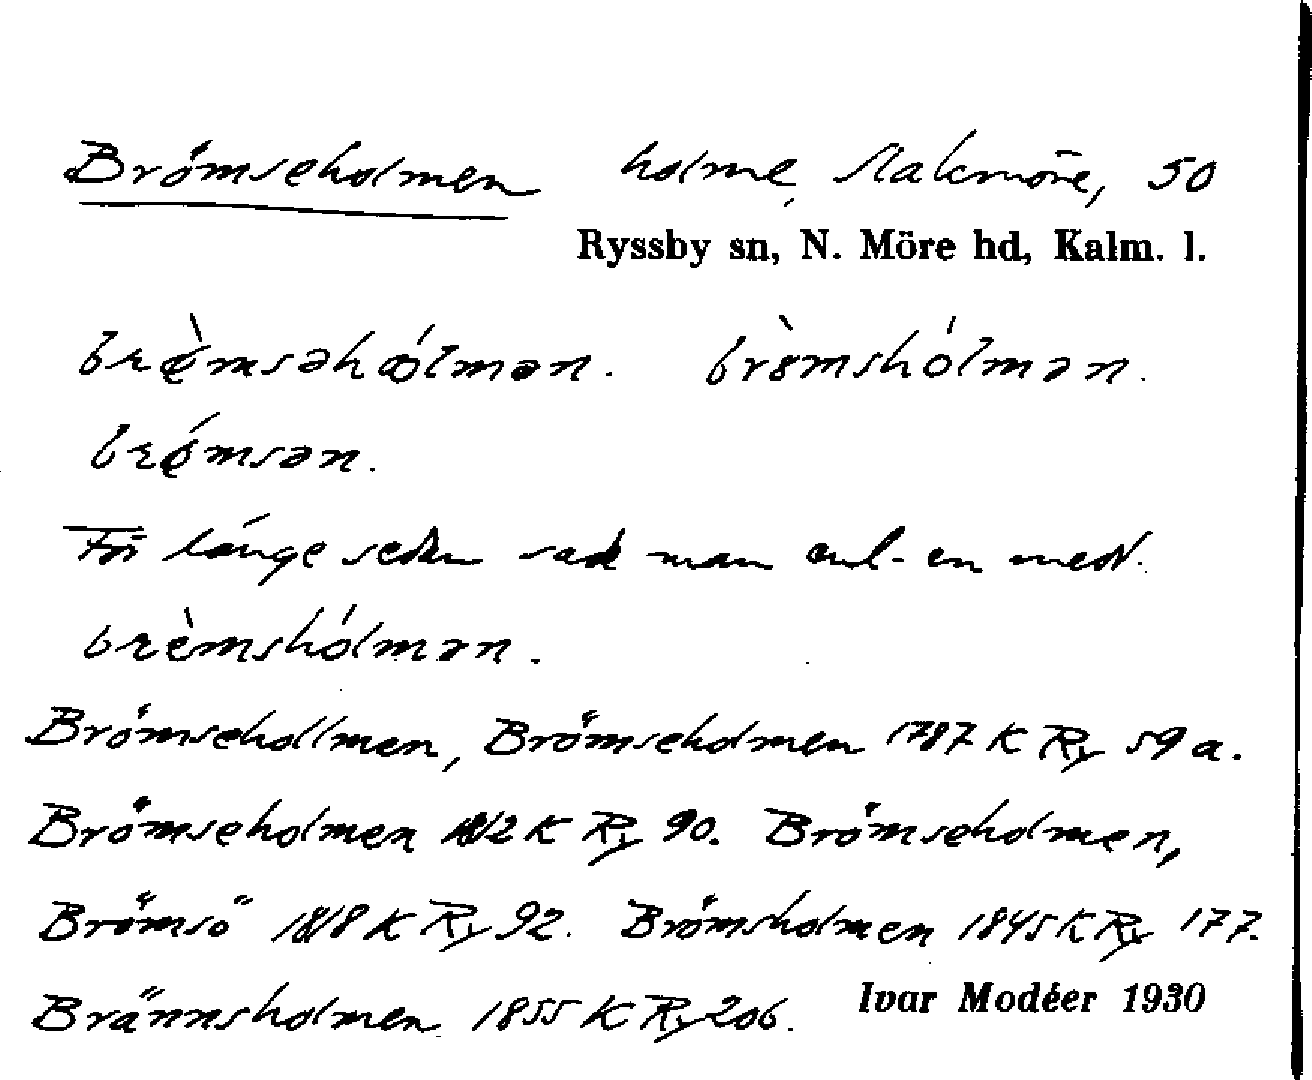 Brömseholmen holme, Stakmöre, 50
Ryssby sn, N. Möre hd, Kalm. l.
brǿ̀msəhǿlmən. bròmshólmən.
brǿmsən.
För länge sedan sad man enl. en medd.
brèmshólmən.
Brömsehollmen, Brömseholmen 1787 K Ry 59 a.
Brömseholmen 1812 K Ry 90. Brömseholmen,
Brömsö 1818 K Ry 92. Brömsholmen 1845 K Ry 177.
Brännsholmen 1855 K Ry 206.
Ivar Modéer 1930